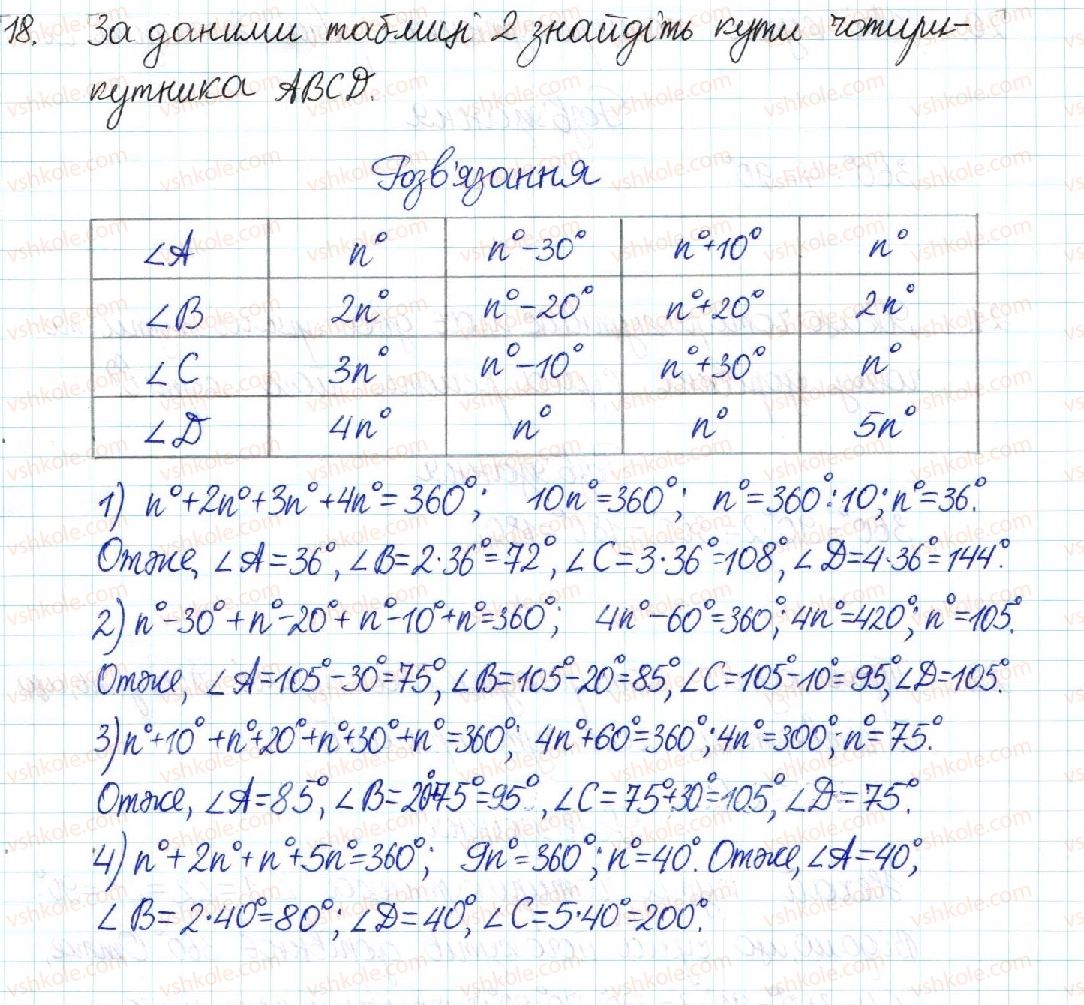 18. За даними таблиці 2 знайдіть кути чотири-
кутника ABCD.
Розв'язання
∠A n° n°-30° n°+10° n°
∠B 2n° n°-20° n°+20° 2n°
∠C 3n° n°-10° n°+30° n°
∠D 4n° n° n° 5n°
1) n°+2n°+3n°+4n°=360°; 10n°=360°; n°=360°:10; n°=36°.
Отже, ∠A=36°, ∠B=2·36°=72°, ∠C=3·36°=108°, ∠D=4·36°=144°.
2) n°-30°+n°-20°+n°-10°+n°=360°; 4n°-60°=360°; 4n°=420°; n°=105°.
Отже, ∠A=105°-30°=75°, ∠B=105°-20°=85°, ∠C=105°-10°=95°, ∠D=105°.
3) n°+10°+n°+20°+n°+30°+n°=360°; 4n°+60°=360°; 4n°=300°; n°=75°.
Отже, ∠A=85°, ∠B=20°+75°=95°, ∠C=75°+30°=105°, ∠D=75°.
4) n°+2n°+n°+5n°=360°; 9n°=360°; n°=40°. Отже, ∠A=40°,
∠B=2·40°=80°; ∠D=40°, ∠C=5·40°=200°.